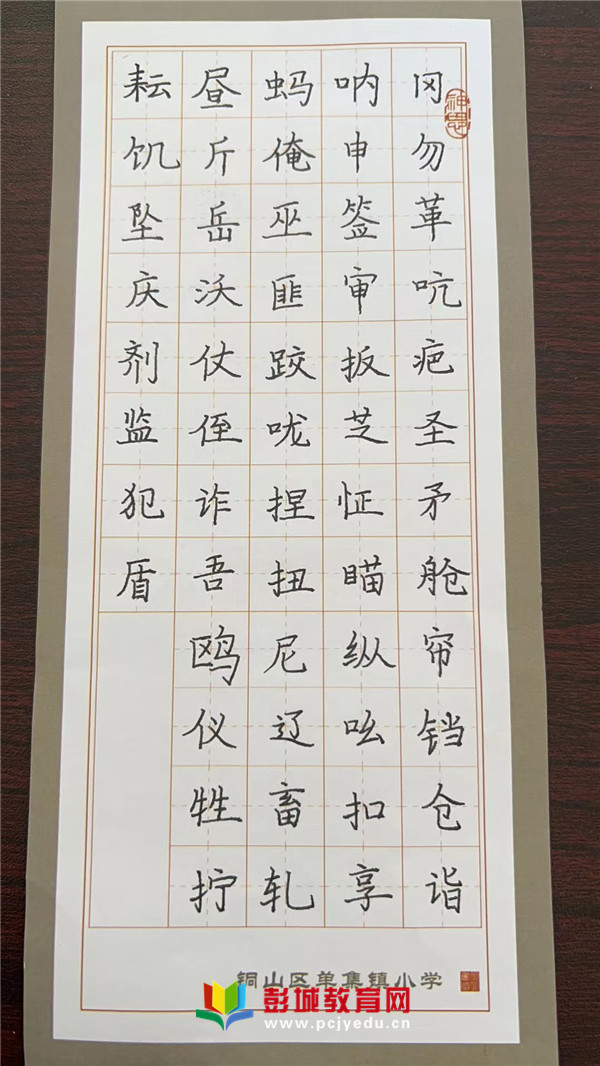 冈勿革吭疤圣矛舱帘铛仓诣
呐申签审扳芝怔瞄纵吆扣享
蚂俺巫匪跤咙捏扭尼辽畜轧
昼斤岳沃仗侄诈吾鸥仪牲拧
耘饥坠庆剂监犯盾
铜山区单集镇小学
彭城教育网
www.pcjyedu.cn